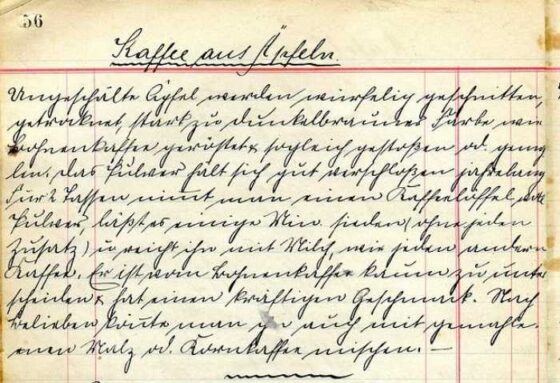 56
Kaffee aus Äpfeln.
Ungeschälte Äpfel werden würfelig geschnitten,
getrocknet, stark zu dunkelbrauner Farbe wie
Bohnenkaffee geröstet & sogleich gestoßen od. gemah-
len. Das Pulver hält sich gut verschloßen jahrelang
Für 2 Tassen nimt man einen Kaffeelöffel voll
Pulver, läßt es einige Min. sieden (ohne jeden
Zusatz) u reicht ihn mit Milch, wie jeden andern
Kaffee. Er ist vom Bohnenkaffee kaum zu unter
scheiden & hat einen kräftigen Geschmack. Nach
Belieben könte man ihn auch mit gemahle-
nen Malz od. Kornkaffee mischen. —